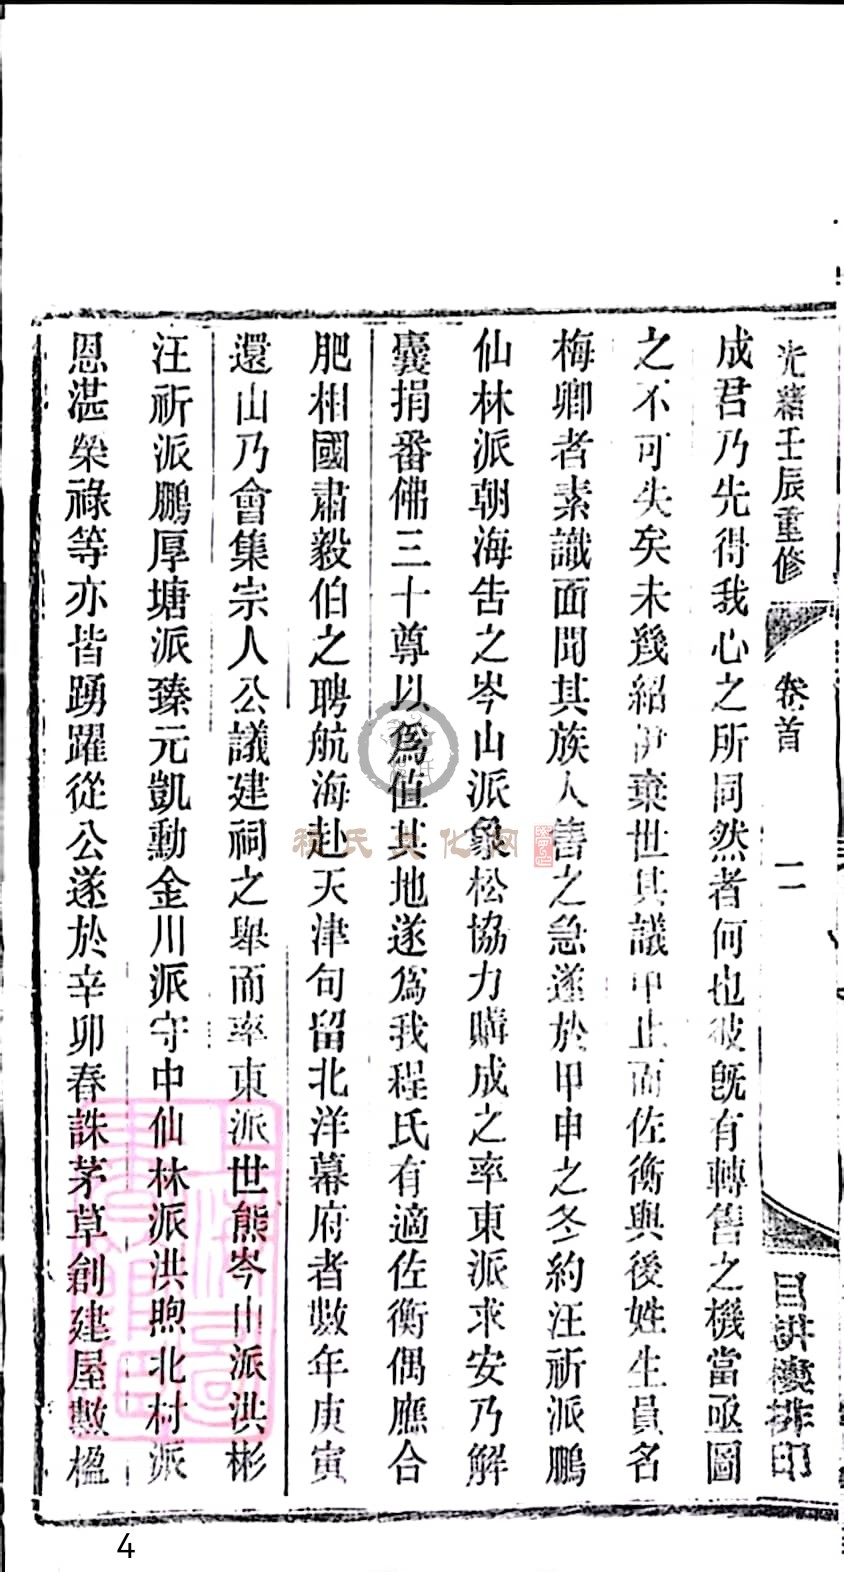 光緒壬辰重修
卷首
二
目耕樓排印
成君乃先得我心之所同然者何也彼既有轉售之機當亟圖
之不可失矣未幾紹伊棄世其議中止而佐衡與後姓生員名
梅卿者素識面聞其族人售之急遂於甲申之冬約汪祈派鵬
仙林派朝海告之岑山派象松協力購成之率東派求安乃解
囊捐番佛三十尊以爲值其地遂爲我程氏有適佐衡偶應合
肥相國肅毅伯之聘航海赴天津句留北洋幕府者數年庚寅
還山乃會集宗人公議建祠之舉而率東派世熊岑山派洪彬
汪祈派鵬厚塘派臻元凱勳金川派守中仙林派洪煦北村派
恩湛榮祿等亦皆踴躍從公遂於辛卯春誅茅草創建屋數楹
程氏文化网
4